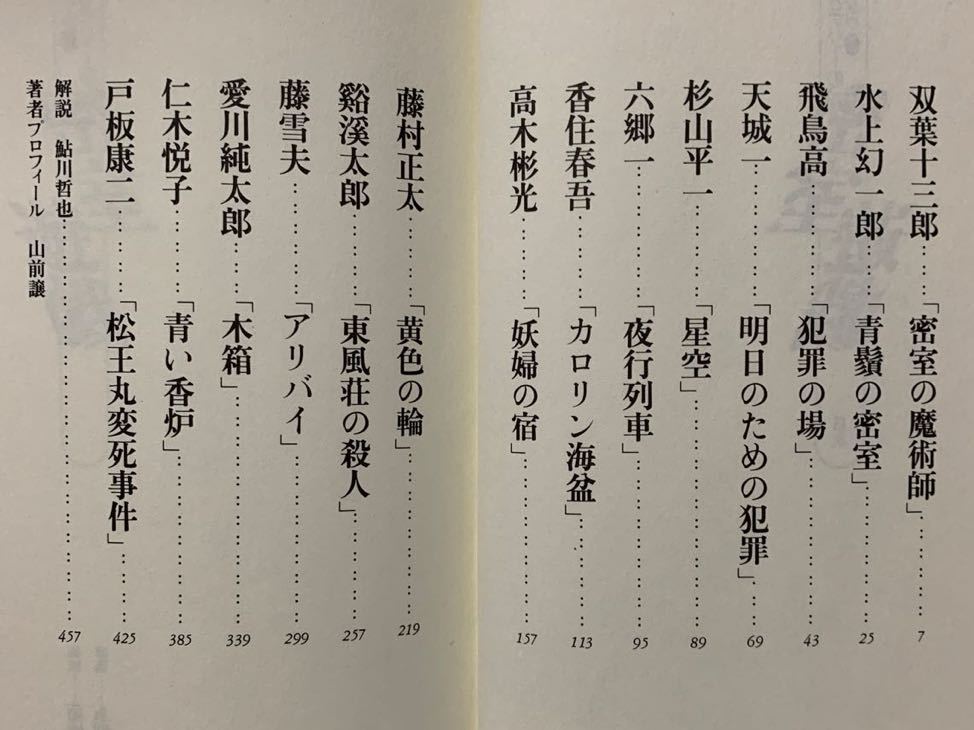 双葉十三郎……「密室の魔術師」……………7
水上幻一郎……「青鬚の密室」………………25
飛鳥高……………「犯罪の場」…………………43
天城一……………「明日のための犯罪」………69
杉山平一…………「星空」………………………89
六郷一……………「夜行列車」…………………95
香住春吾…………「カロリン海盆」……………113
高木彬光…………「妖婦の宿」…………………157
藤村正太…………「黄色の輪」…………………219
谿溪太郎…………「東風荘の殺人」……………257
藤雪夫……………「アリバイ」…………………299
愛川純太郎………「木箱」………………………339
仁木悦子…………「青い香炉」…………………385
戸板康二…………「松王丸変死事件」…………425
解説　鮎川哲也……………………………………457
著者プロフィール　山前譲